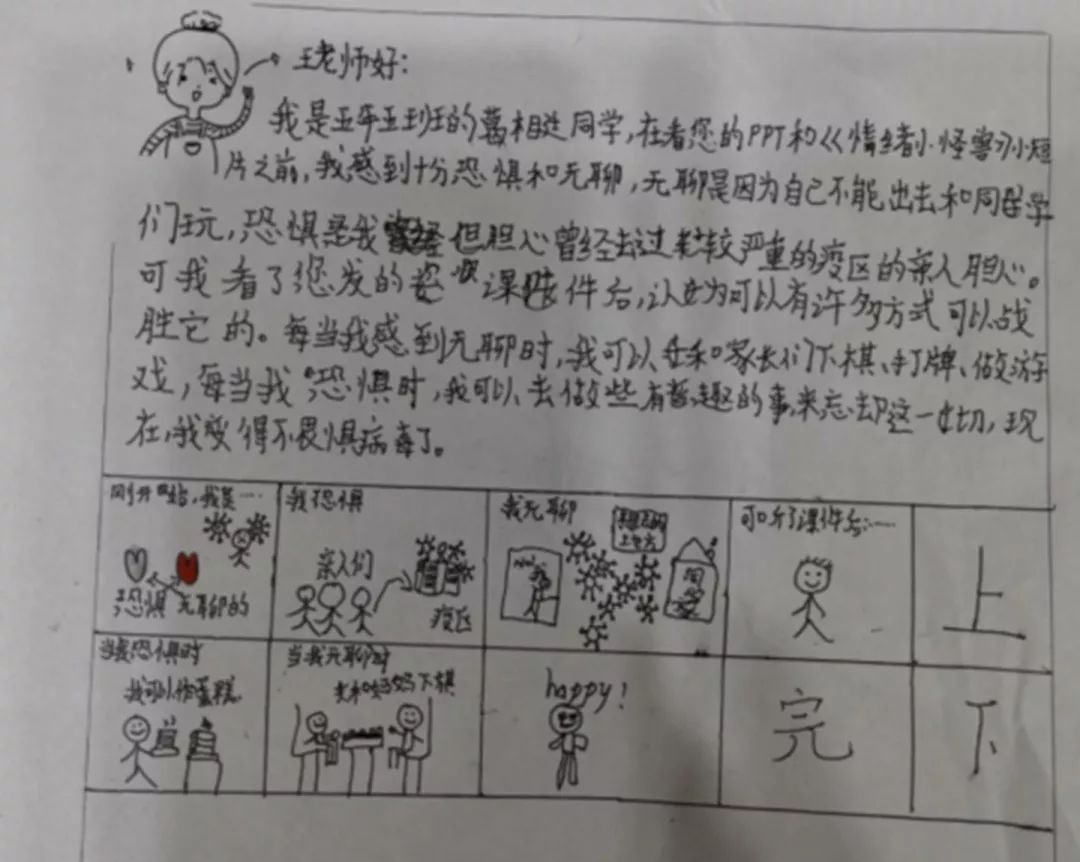 王老师好:
我是五年五班的葛相廷同学,在看您的PPT和《情绪小怪兽》小短
片之前,我感到十分恐惧和无聊,无聊是因为自己不能出去和同学
们玩,恐惧是我但胆心曾经去过比较严重的疫区的亲人胆心。
可我看了您发的课件后,认为可以有许多方式可以战
胜它的。每当我感到无聊时,我可以和家长们下棋、打牌、做游
戏,每当我恐惧时,我可以去做些有趣的事来忘却这一切,现
在,我变得不畏惧病毒了。
刚开始,我是……
恐惧 无聊的
我恐惧
亲人们
疫区
我无聊
可听了课件后……
上
当我恐惧时
我可以作蛋糕
当我无聊时
去和妈妈下棋
happy!
完
下